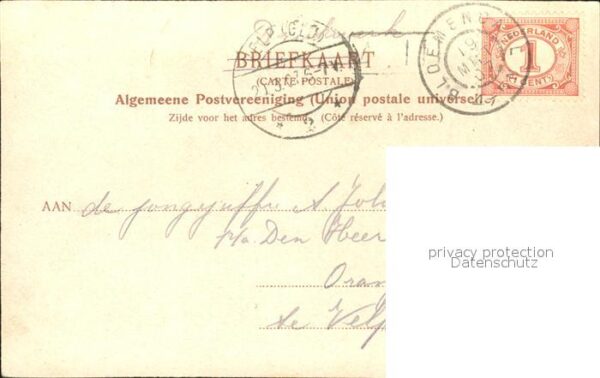 NEDERLAND
1
CENT
BLOEMENDAAL
VELP (GELD)
BRIEFKAART
(CARTE POSTALE)
Algemeene Postvereeniging (Union postale universel
Zijde voor het adres bestemd. (Côté réservé à l'adresse.)
AAN de jongejuffr. A
p/a Den Heer
Oran
te Velp
privacy protection
Datenschutz